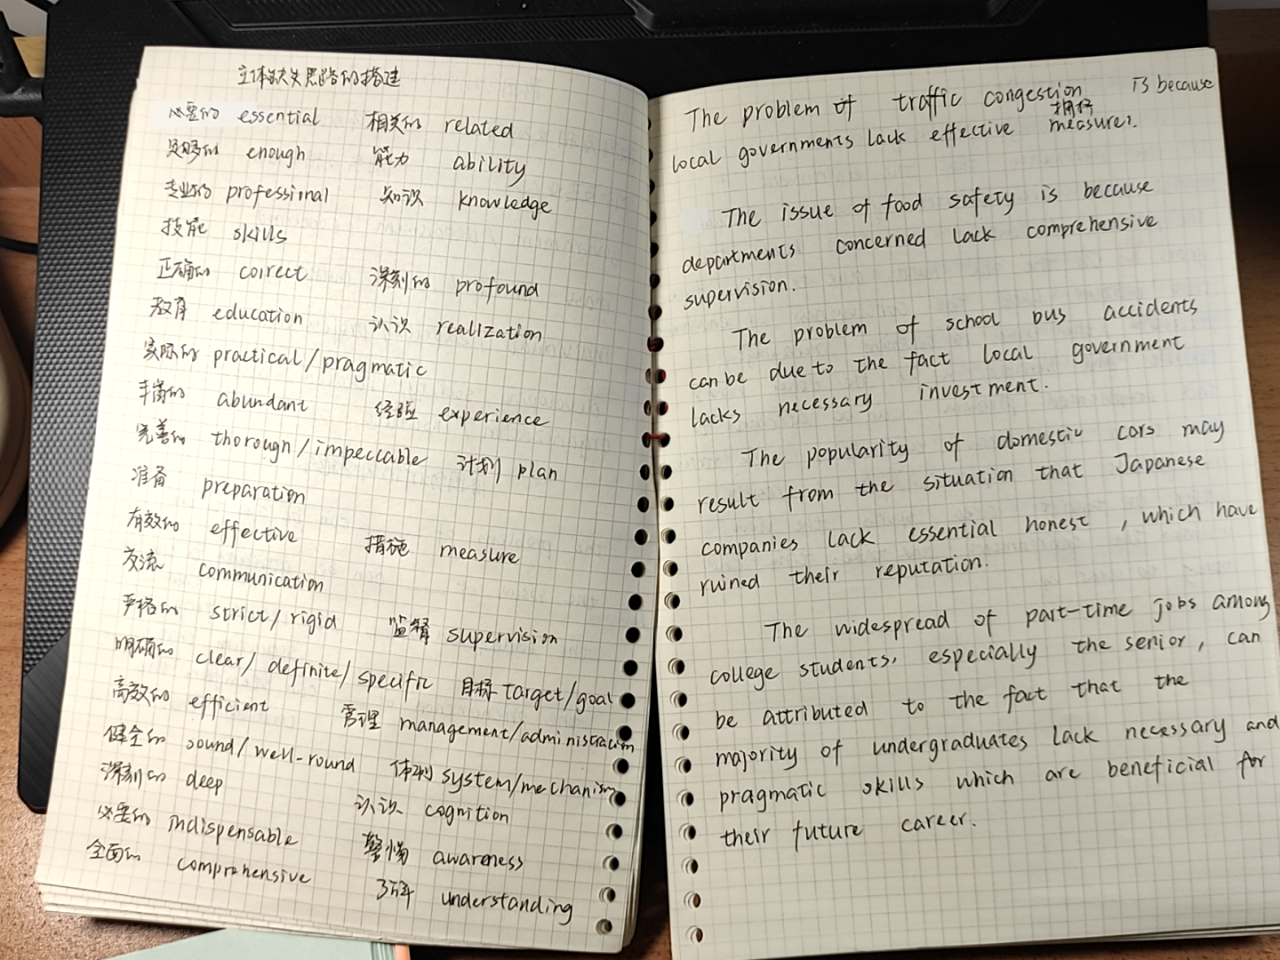 立体缺失思路的搭建
必要的 essential 相关的 related
足够的 enough 能力 ability
专业的 professional 知识 knowledge
技能 skills
正确的 correct 深刻的 profound
教育 education 认识 realization
实际的 practical/pragmatic
丰富的 abundant 经验 experience
完善的 thorough/impeccable 计划 plan
准备 preparation
有效的 effective 措施 measure
交流 communication
严格的 strict/rigid 监督 supervision
明确的 clear/definite/specific 目标 target/goal
高效的 efficient 管理 management/administration
健全的 sound/well-round 体制 system/mechanism
深刻的 deep 认识 cognition
必要的 indispensable 警惕 awareness
全面的 comprehensive 了解 understanding
The problem of traffic congestion is because
拥挤
local governments lack effective measures.
The issue of food safety is because
departments concerned lack comprehensive
supervision.
The problem of school bus accidents
can be due to the fact local government
lacks necessary investment.
The popularity of domestic cars may
result from the situation that Japanese
companies lack essential honest, which have
ruined their reputation.
The widespread of part-time jobs among
college students, especially the senior, can
be attributed to the fact that the
majority of undergraduates lack necessary and
pragmatic skills which are beneficial for
their future career.